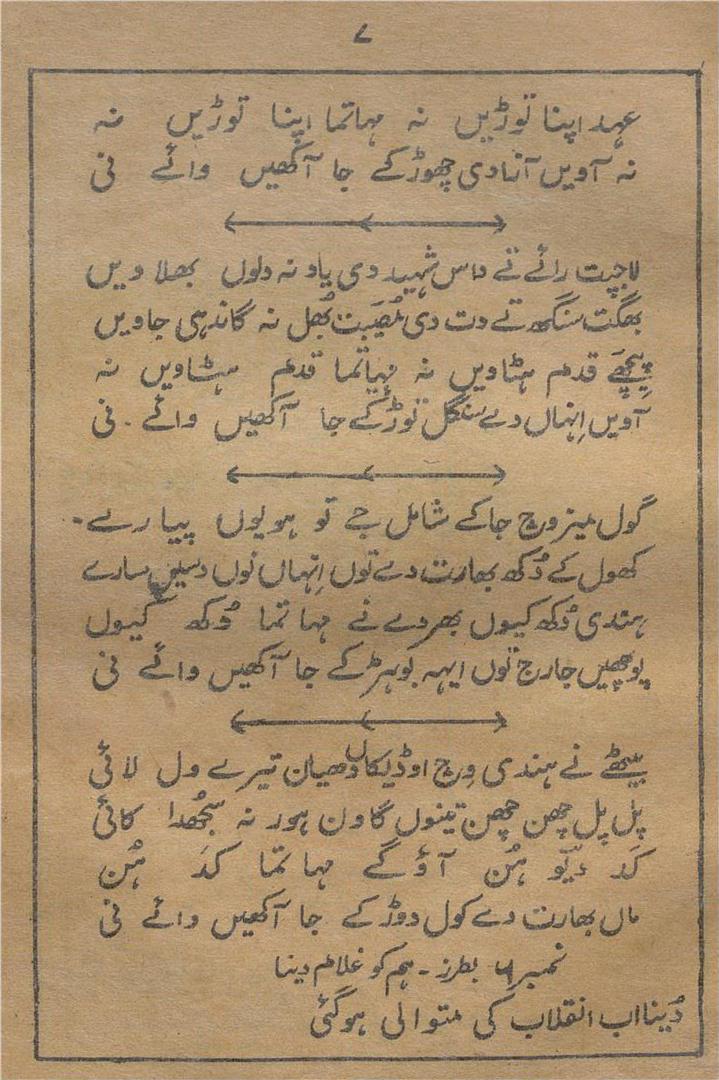 ۷
عہد اپنا توڑیں نہ مہاتما اپنا توڑیں نہ
نہ آویں آزادی چھوڑ کے جا آکھیں وائے نی
لاجپت رائے تے داس شہید دی یاد نہ دلوں بھلاویں
بھگت سنگھ تے دت دی مُصیَبت بُھل نہ گاندہی جاویں
پِچھَے قدم ہٹاویں نہ مہاتما قدم ہٹاویں نہ
آویں اِنہاں دے سنگل توڑ کے جا آکھیں وائے۔ نی
گول میز وچ جا کے شامل جے تو ہویوں پیارے۔
کھول کے دُکھ بھارت دے توں اِنہاں نوں دسیں سارے
ہندی دُکھ کیوں بھردے نے مہاتما دُکھ کیوں
پوچھیں جارج نوں ایہہ بوہڑ کے جا آکھیں وائے نی
بیٹھے نے ہندی وِچ اوڈیکاں دھیان تیرے ول لائی
پل پل چھن چھن تینوں گاون ہور نہ سُجھدا کائی
کد دیّو ہُن آؤگے مہاتما کدَ ہُن
ماں بھارت دے کول دوڑ کے جا آکھیں وائے نی
نمبر ۶ بطرز۔ ہم کو غلام دینا
دُنیا اب انقلاب کی متوالی ہو گئی